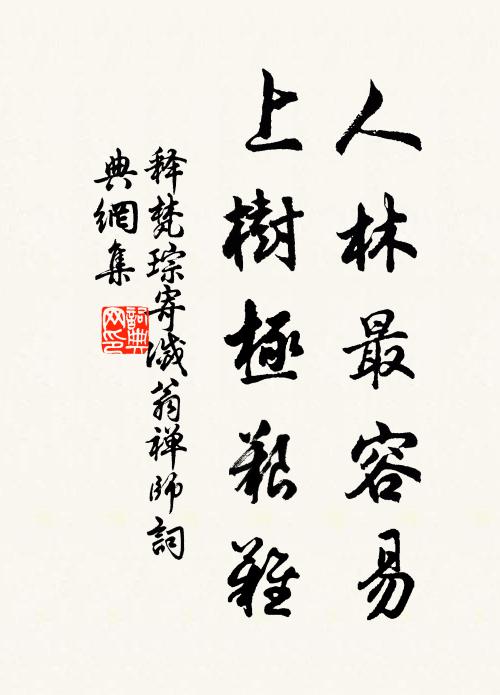 人林最容易
上樹極艱難
释梵琮寄滅翁禅師詞
典網集
詞典
网印